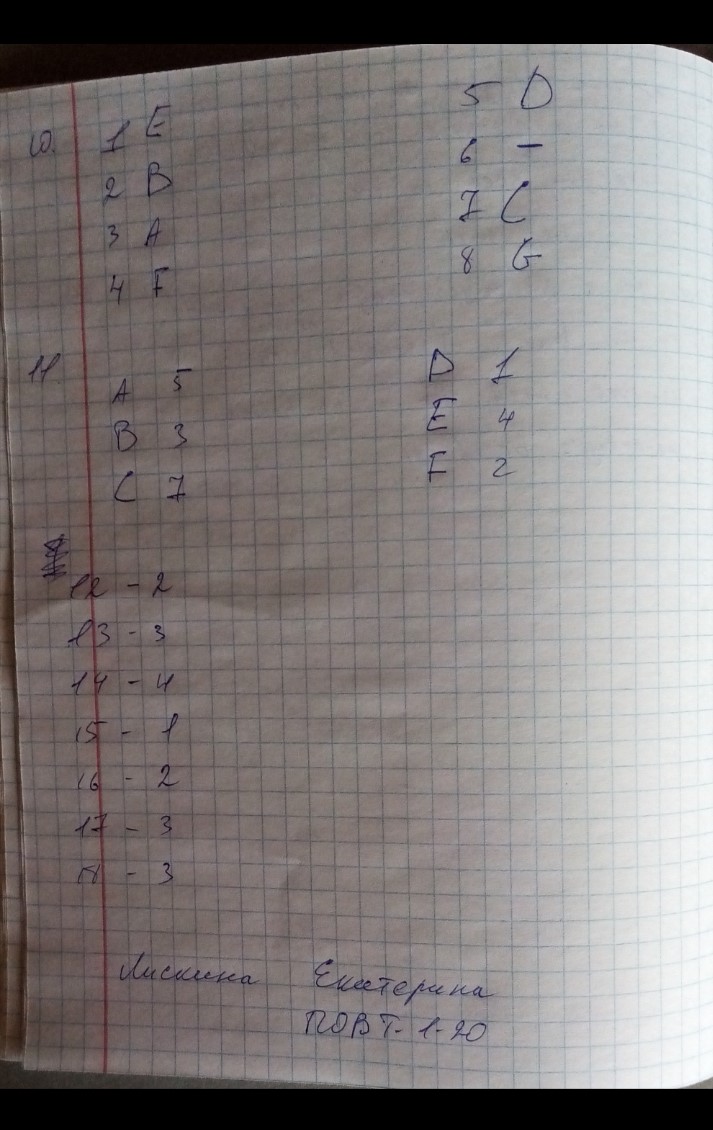 10. 1 E 5 D
2 B 6 –
3 A 7 C
4 F 8 G
11 A 5 D 1
B 3 E 4
C 7 F 2
12 – 2
13 – 3
14 – 4
15 – 1
16 – 2
17 – 3
18 – 3
Лискина Екатерина
ПОВТ-1-20